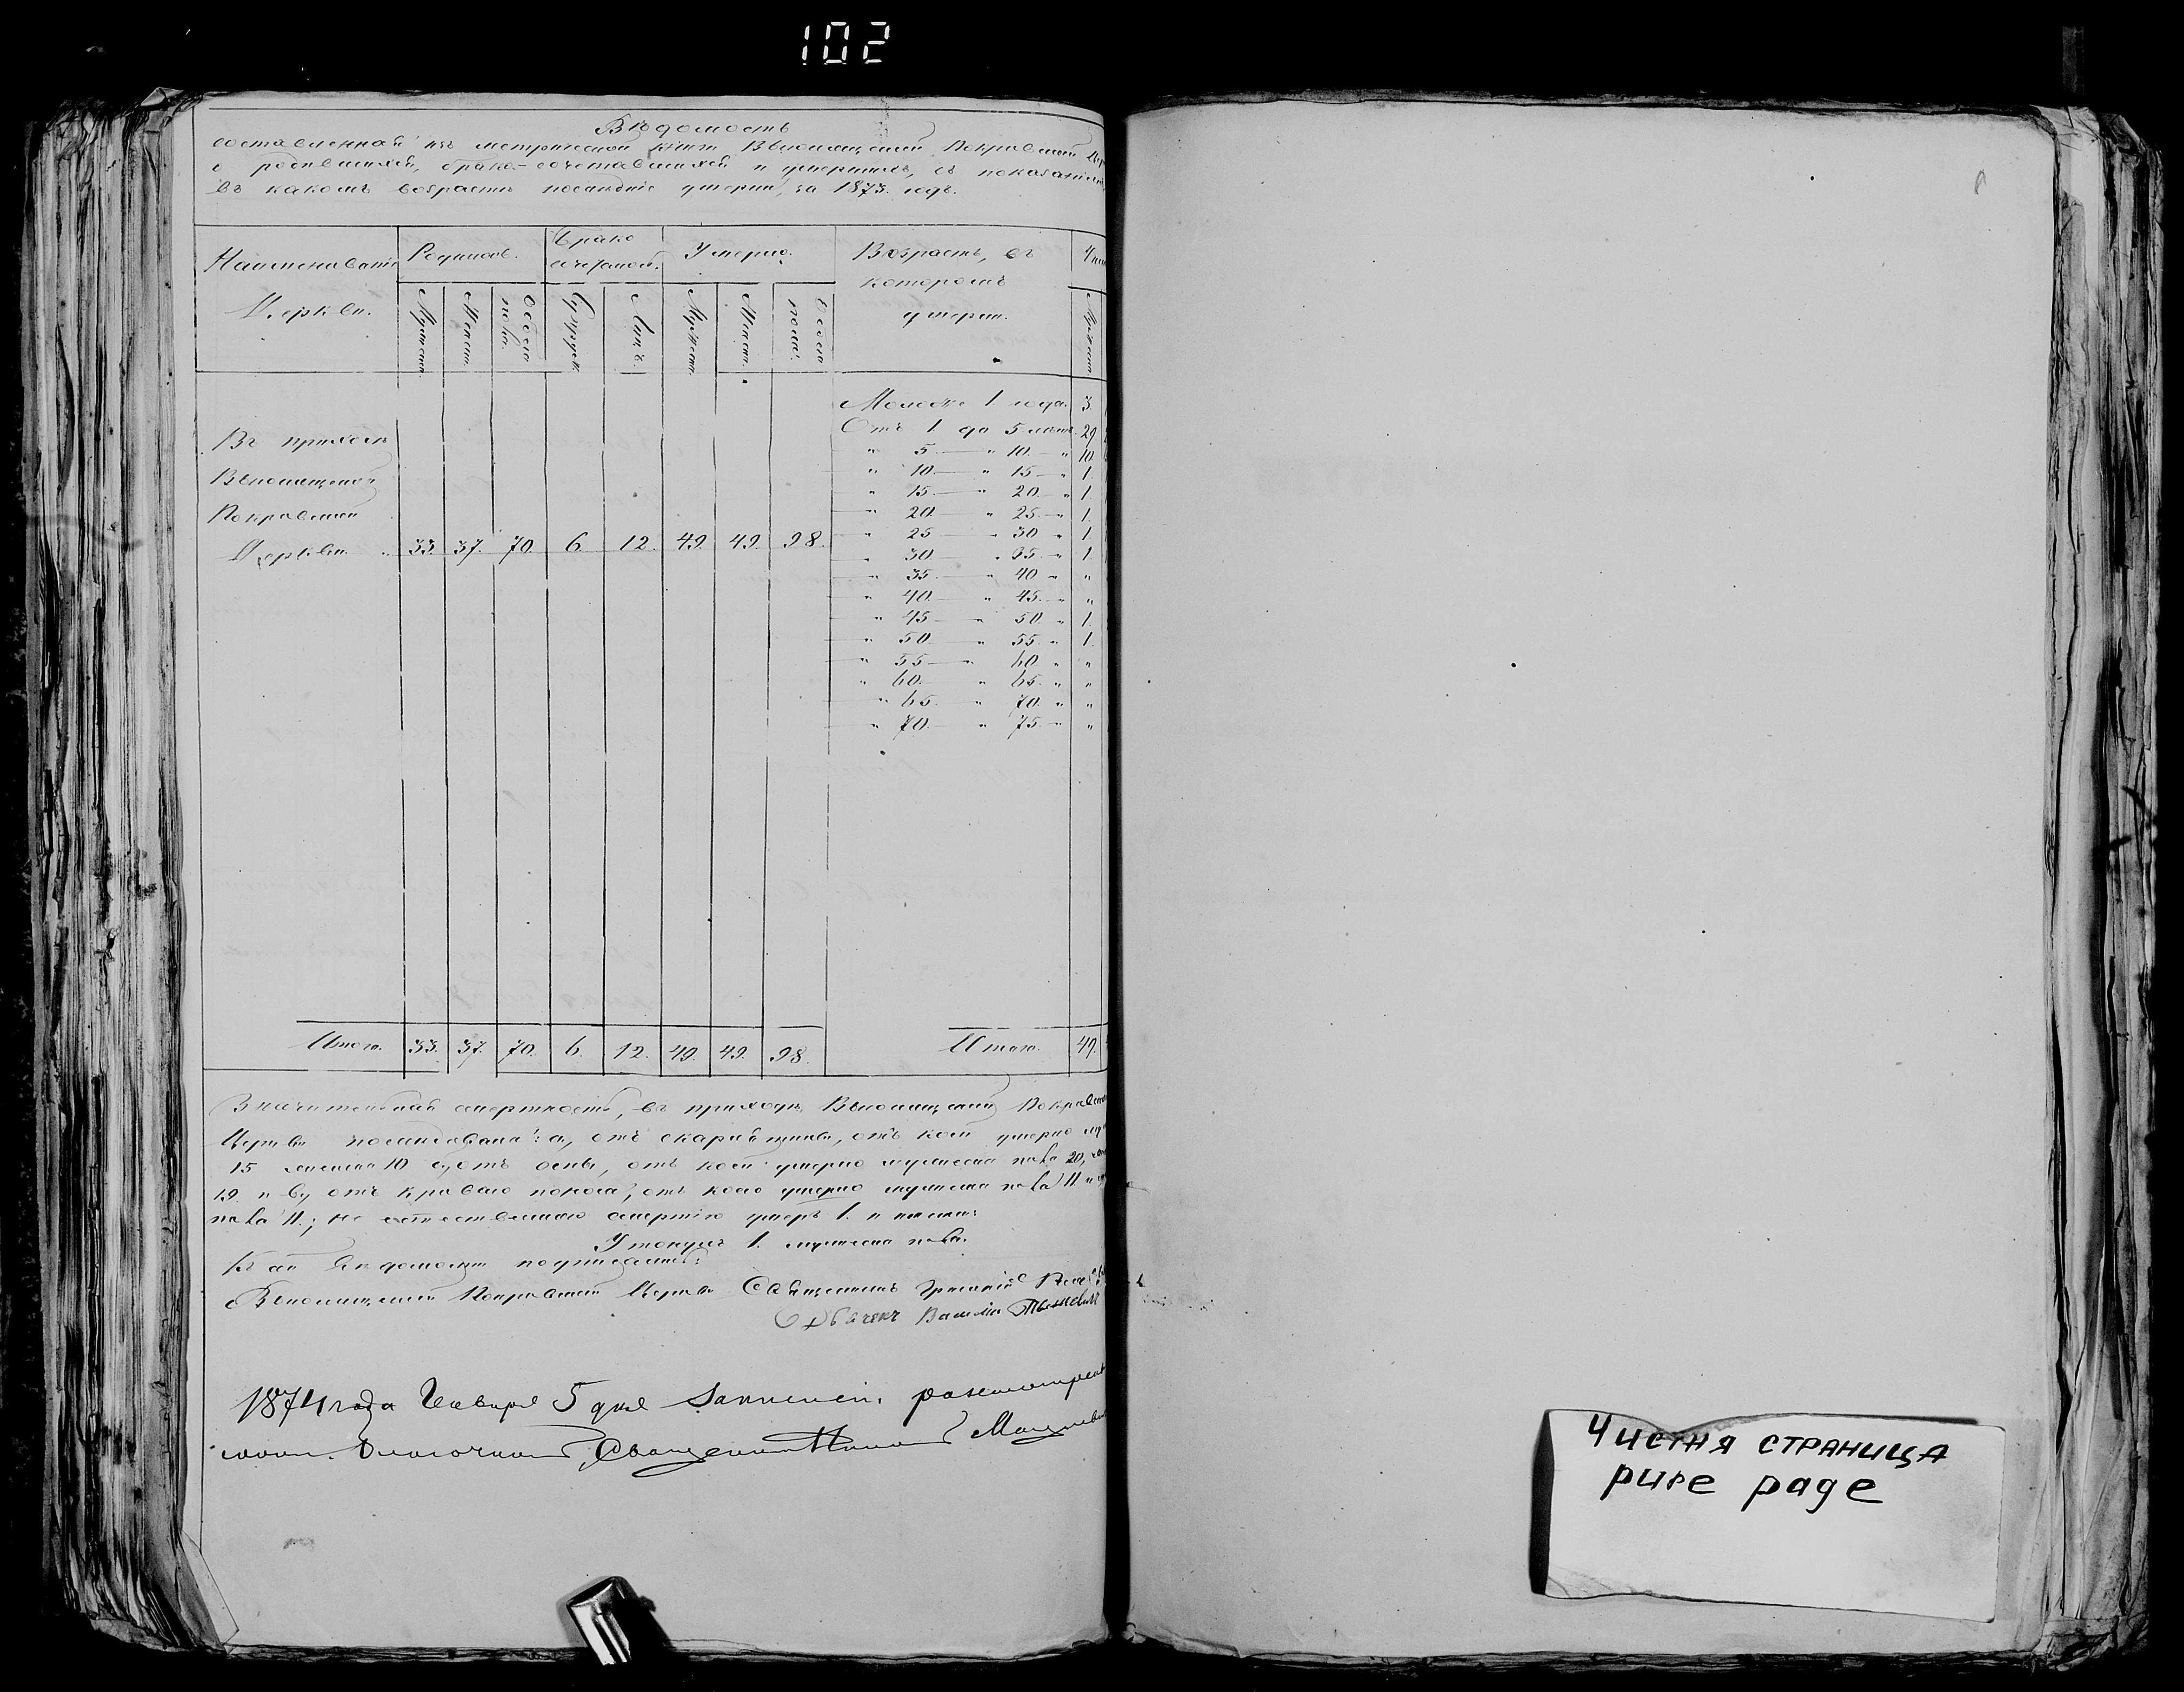 102
Вѣдомость
составленная изъ метрической книги Покровской
о родившихся, брако-сочетавшихся и умершихъ, съ показаніемъ
въ какомъ возрастѣ послѣдніе умерли, за 1873. годъ.
Наименованіе Родилось. Брако Умерло. Возрастъ, въ
сочеталось. которомъ
Церкви. Мужеск. Женск. Обоего пола. Супруж. Лицъ. Мужеск. Женск. Обоего пола. умерли. Мужеск.
Моложе 1 года. 3.
Отъ 1 до 5 лѣтъ. 29
Въ приходѣ " 5 — " 10. — " 10.
" 10 — " 15 — " 1.
" 15 — " 20. — " 1.
Покровской " 20. " 25. — " 1.
" 25 " 30 " 1.
Церкви 33. 37. 70. 6. 12. 49. 49. 98. " 30. " 35. " 1.
" 35 — " 40 " "
" 40. — " 45. — " "
" 45 — " 50. " 1.
" 50. — " 55. " 1.
" 55 — " 60. " "
" 60. — " 65. " "
" 65. " 70. " "
" 70. — " 75. — " "
Итого. 33. 37. 70. 6. 12. 49. 49. 98. Итого. 49.
Значительная смертность, въ приходѣ Покровской
Церкви послѣдовала: а, отъ скарлатины, отъ коей умерло
15 женска 10 б, отъ оспы, отъ коей умерло мужеска пола 20,
19. и в, отъ кроваго поноса, отъ коего умерло мужеска пола 11. и
пола 11.; не естественною смертію умеръ 1. и именно:
Утонулъ 1. мужеска пола.
Къ сей Вѣдомости подписались:
Покровской Церкви Священникъ Григорій
Василій
1874 года Января 5 дня
Благочинный, Священникъ
Чистня страница
pure page